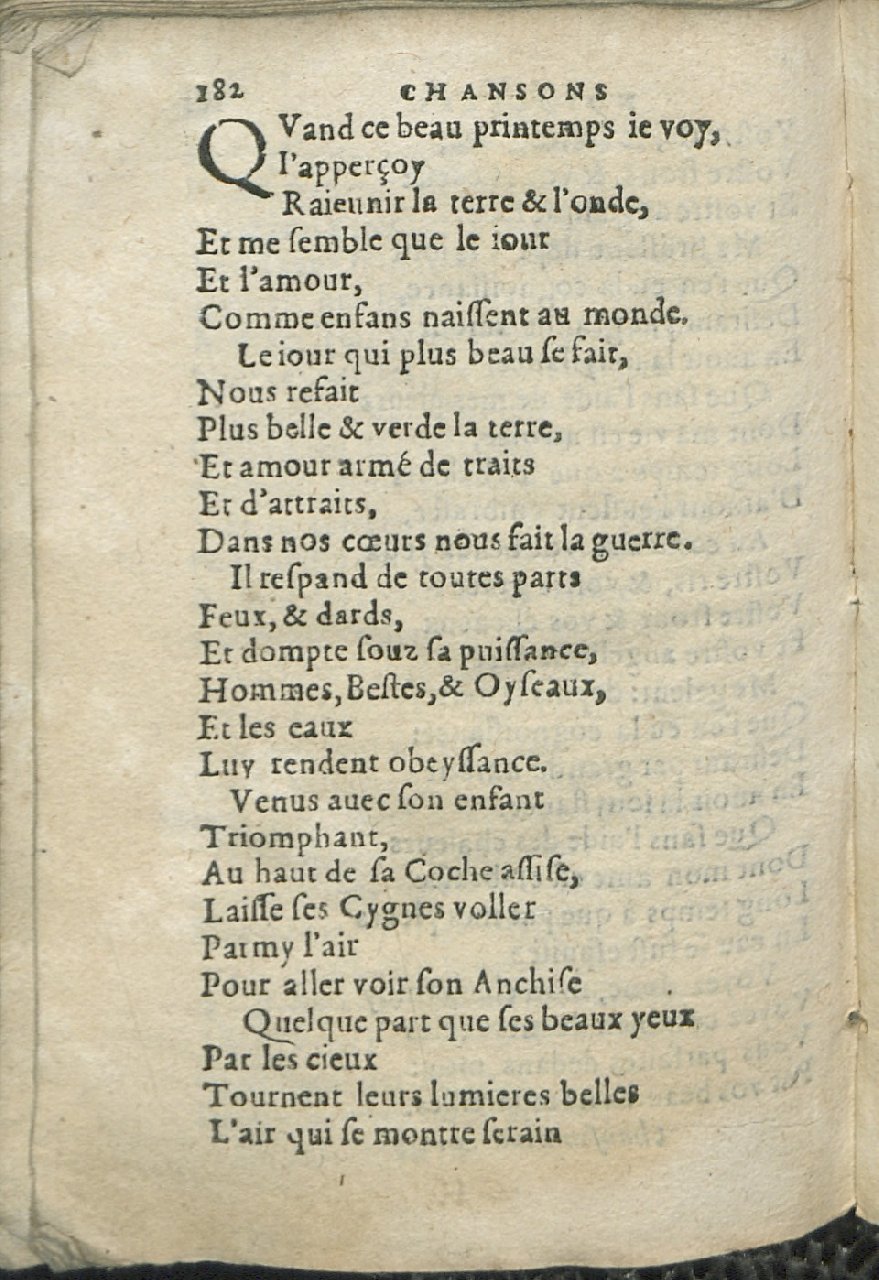 182 CHANSONS
QVand ce beau printemps ie voy,
I'apperçoy
Raieunir la terre & l'onde,
Et me ſemble que le iour
Et l'amour,
Comme enfans naiſſent au monde.
Le iour qui plus beau ſe fait,
Nous refait
Plus belle & verde la terre,
Et amour armé de traits
Et d'attraits,
Dans nos cœurs nous fait la guerre.
Il reſpand de toutes parts
Feux, & dards,
Et dompte ſouz ſa puiſſance,
Hommes, Beſtes, & Oyſeaux,
Et les eaux
Luy rendent obeyſſance.
Venus auec ſon enfant
Triomphant,
Au haut de ſa Coche aſſiſe,
Laiſſe ſes Cygnes voller
Parmy l'air
Pour aller voir ſon Anchiſe
Quelque part que ſes beaux yeux
Par les cieux
Tournent leurs lumieres belles
L'air qui ſe montre ſerain